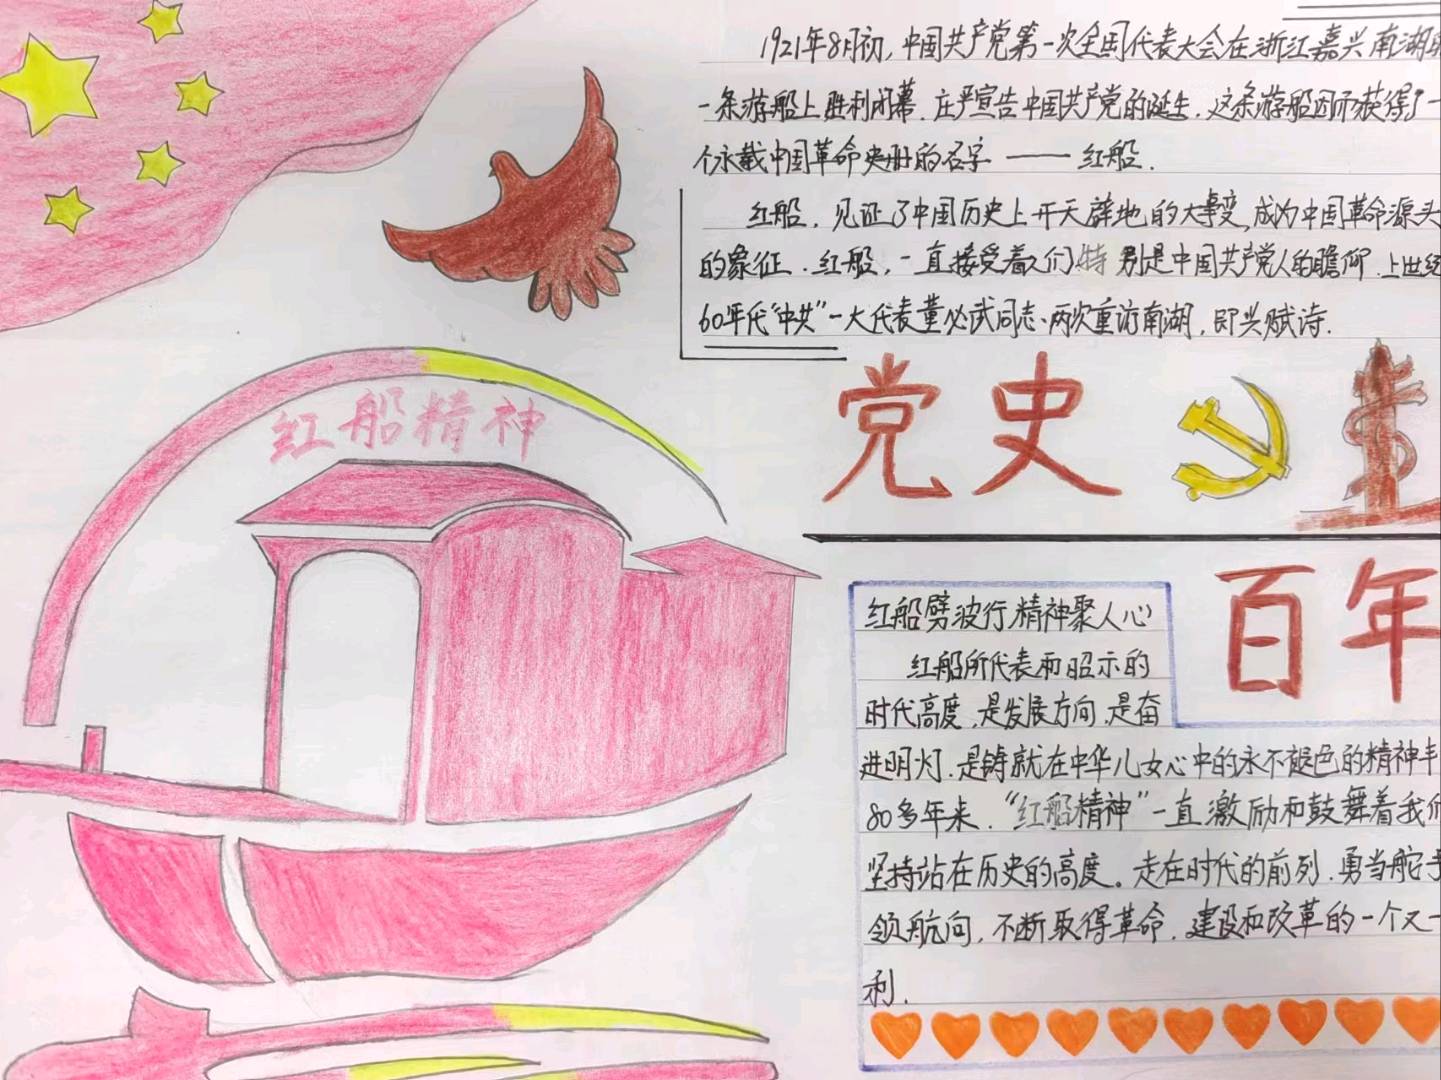 1921年8月初,中国共产党第一次全国代表大会在浙江嘉兴南湖
一条游船上胜利闭幕.庄严宣告中国共产党的诞生.这条游船因而获得了一
个永载中国革命史册的名字——红船.
红船,见证了中国历史上开天辟地的大事变,成为中国革命源头
的象征.红船,一直接受着人们特别是中国共产党人的瞻仰.上世纪
60年代"中共"一大代表董必武同志、两次重访南湖,即兴赋诗.
红船精神
党史
百年
红船劈波行,精神聚人心
红船所代表和昭示的
时代高度,是发展方向,是奋
进明灯.是铸就在中华儿女心中的永不褪色的精神丰
80多年来."红船精神"一直激励和鼓舞着我们
坚持站在历史的高度。走在时代的前列.勇当舵手
领航向,不断取得革命.建设和改革的一个又一
利.